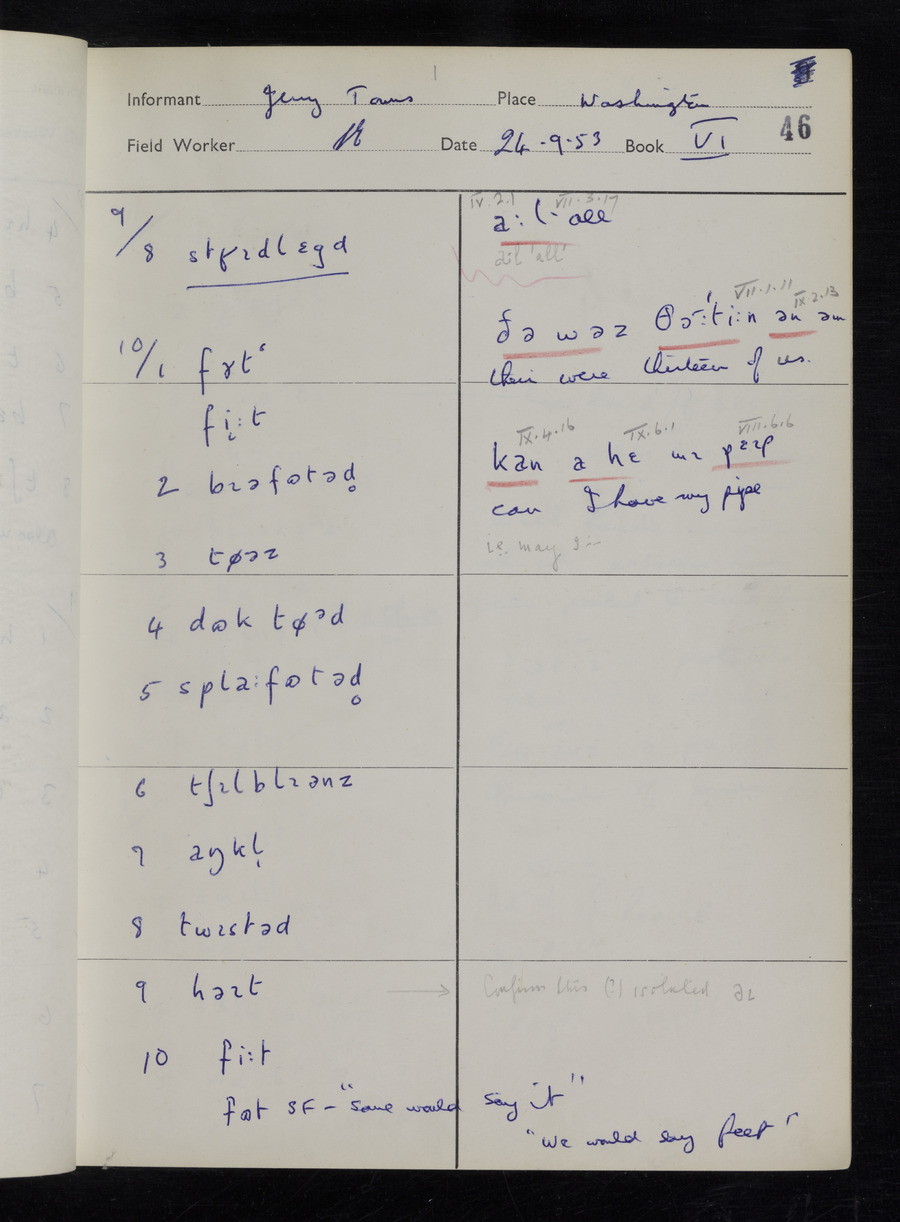 Informant Place Washington
46
Field Worker Date 24-9-53 Book VI
9/8 stɪɪdlɛgd
IV.2.1 VII.3.17
a:l· all
a:l 'all'
VII.1.11 IX.2.13
ðə wəz θə:'ti:n ən əm
their were thirteen of us.
10/1
fi:t
IX.4.16 IX.6.1 VIII.6.6
kan a hɛ mɪ pɛɪp
can I have my pipe
i.e. may I
2 bɪəfɷtəd̥
3 tøəz
4 dɷk tøəd
5 spla:fɷtəd̥
6 tʃɪlblɪənz
7 aŋkl̩
8 twɪstəd
9 həɪt → Confirm this (?) isolated əɪ
10 fi:t
fɷt SF – "some would say it"
"We would say feet"